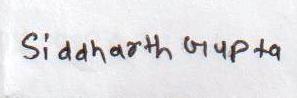 Siddharth Gupta